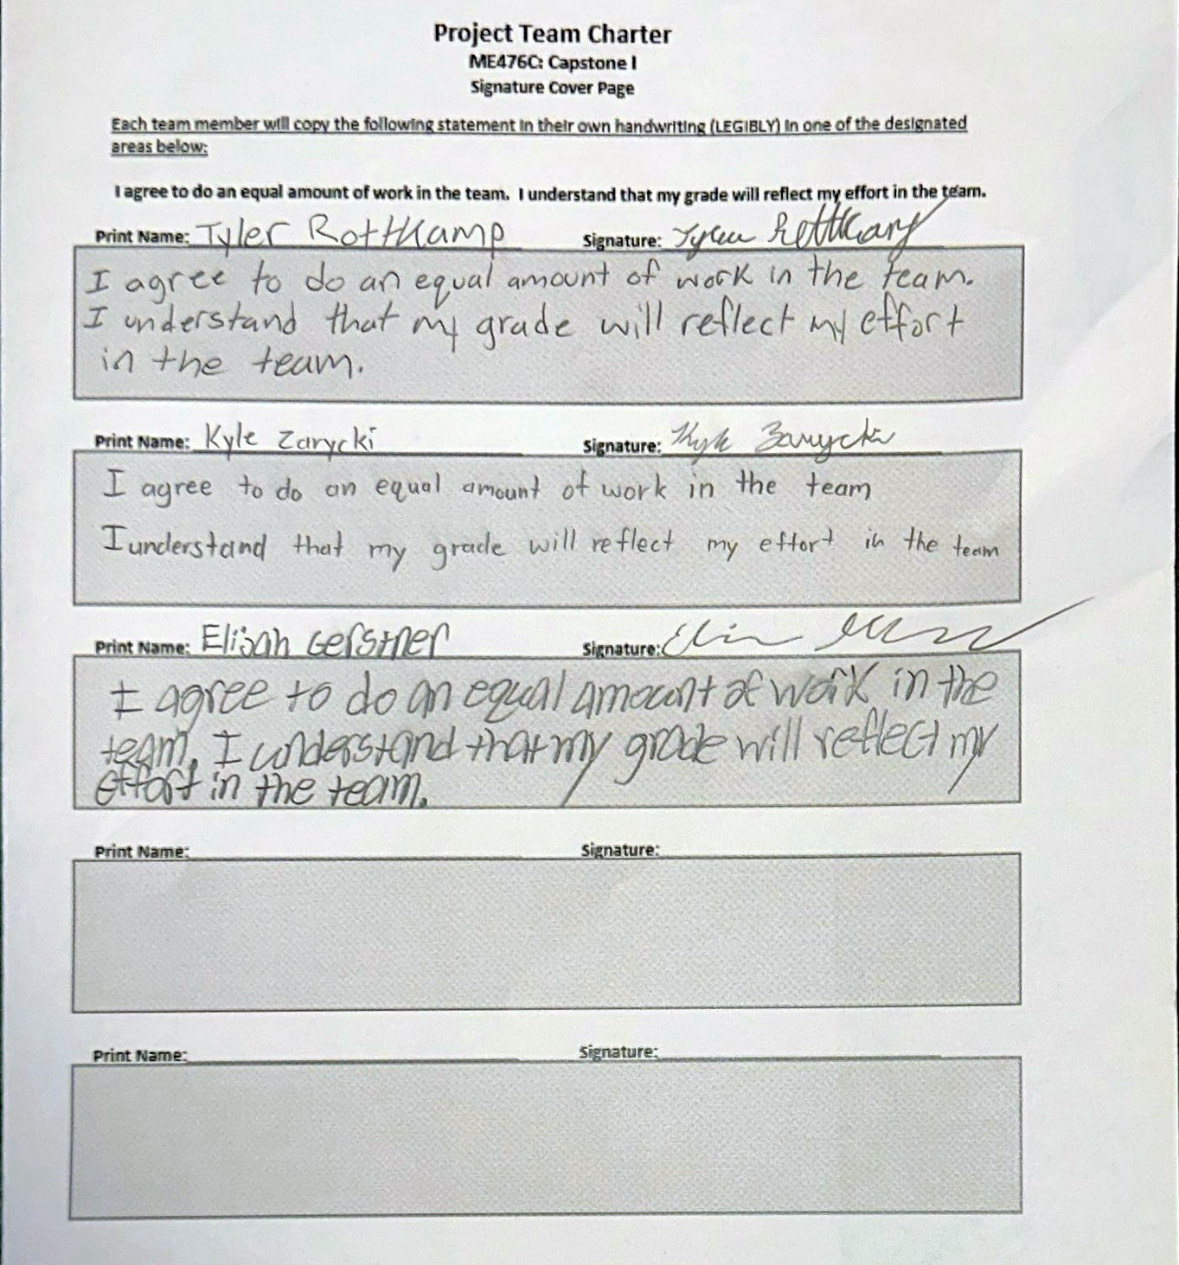 Project Team Charter
ME476C: Capstone I
Signature Cover Page
Each team member will copy the following statement in their own handwriting (LEGIBLY) in one of the designated
areas below:
I agree to do an equal amount of work in the team. I understand that my grade will reflect my effort in the team.
Print Name: Tyler Rottkamp Signature: Tyler Rottkamp
I agree to do an equal amount of work in the team.
I understand that my grade will reflect my effort
in the team.
Print Name: Kyle Zarycki Signature: Kyle Zarycki
I agree to do an equal amount of work in the team
I understand that my grade will reflect my effort in the team
Print Name: Elijah Gerstner Signature:
I agree to do an equal amount of work in the
team. I understand that my grade will reflect my
effort in the team.
Print Name: Signature:
Print Name: Signature: